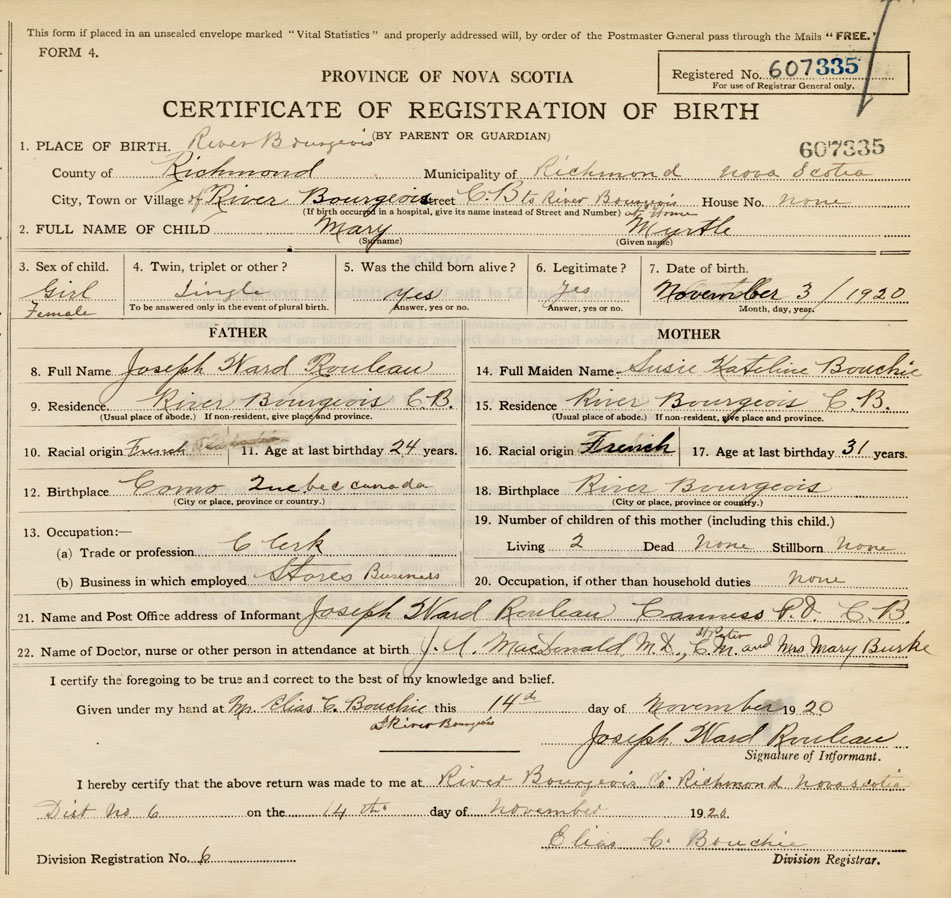 This form if placed in an unsealed envelope marked "Vital Statistics" and properly addressed will, by order of the Postmaster General pass through the Mails "FREE."
FORM 4.
PROVINCE OF NOVA SCOTIA
Registered No. 607335
For use of Registrar General only.
CERTIFICATE OF REGISTRATION OF BIRTH
(BY PARENT OR GUARDIAN)
607335
1. PLACE OF BIRTH. River Bourgeois
County of Richmond Municipality of Richmond Nova Scotia
City, Town or Village of River Bourgeois Street C.B. River Bourgeois House No. none
(If birth occured in a hospital, give its name instead of Street and Number) at Home
2. FULL NAME OF CHILD Mary Myrtle
(Surname) (Given name)
3. Sex of child. 4. Twin, triplet or other? 5. Was the child born alive? 6. Legitimate? 7. Date of birth.
Girl Single yes Yes November 3 / 1920
Female To be answered only in the event of plural birth. Answer, yes or no. Answer, yes or no. Month, day, year.
FATHER MOTHER
8. Full Name Joseph Ward Rouleau
14. Full Maiden Name Susie Kateline Bouchie
9. Residence. River Bourgeois C.B.
(Usual place of abode.) If non-resident, give place and province.
15. Residence River Bourgeois C.B.
(Usual place of abode.) If non-resident, give place and province.
10. Racial origin French 11. Age at last birthday 24 years.
16. Racial origin French 17. Age at last birthday 31 years.
12. Birthplace Como Quebec canada
(City or place, province or country.)
18. Birthplace River Bourgeois
(City or place, province or country.)
13. Occupation:—
(a) Trade or profession Clerk
(b) Business in which employed Stores Business
19. Number of children of this mother (including this child.)
Living 2 Dead None Stillborn None
20. Occupation, if other than household duties none
21. Name and Post Office address of Informant Joseph Ward Rouleau P.O. C.B.
22. Name of Doctor, nurse or other person in attendance at birth J. A. MacDonald M.D., C.M. and Mrs Mary Burke
I certify the foregoing to be true and correct to the best of my knowledge and belief.
Given under my hand at Mr. Elias C. Bouchie this 14th day of November 1920
River Bourgeois
Joseph Ward Rouleau
Signature of Informant.
I hereby certify that the above return was made to me at River Bourgeois Co Richmond Nova scotia
Dist No 6 on the 14th day of November 1920.
Elias C. Bouchie
Division Registration No. 6 Division Registrar.